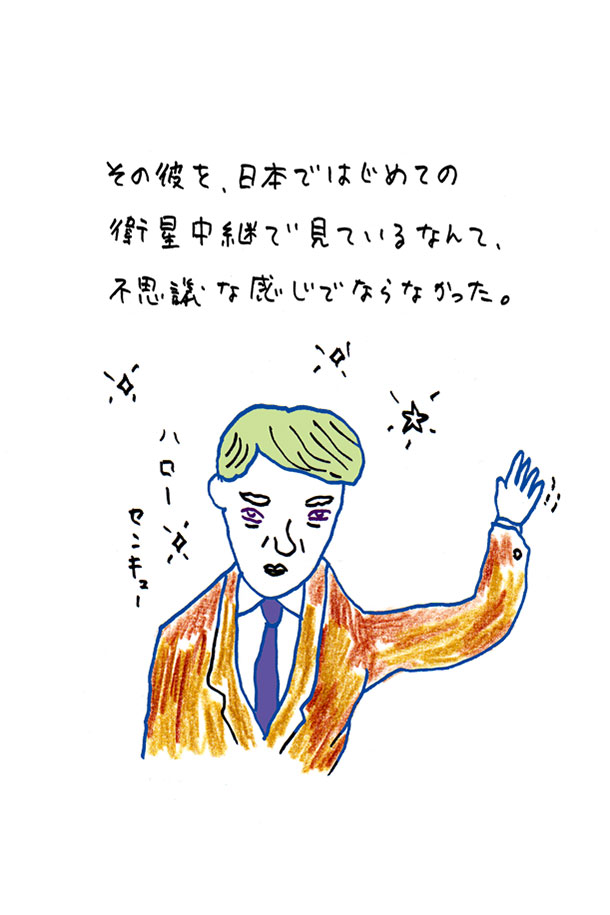 その彼を、日本ではじめての
衛星中継で見ているなんて、
不思議な感じでならなかった。
ハロー
センキュー